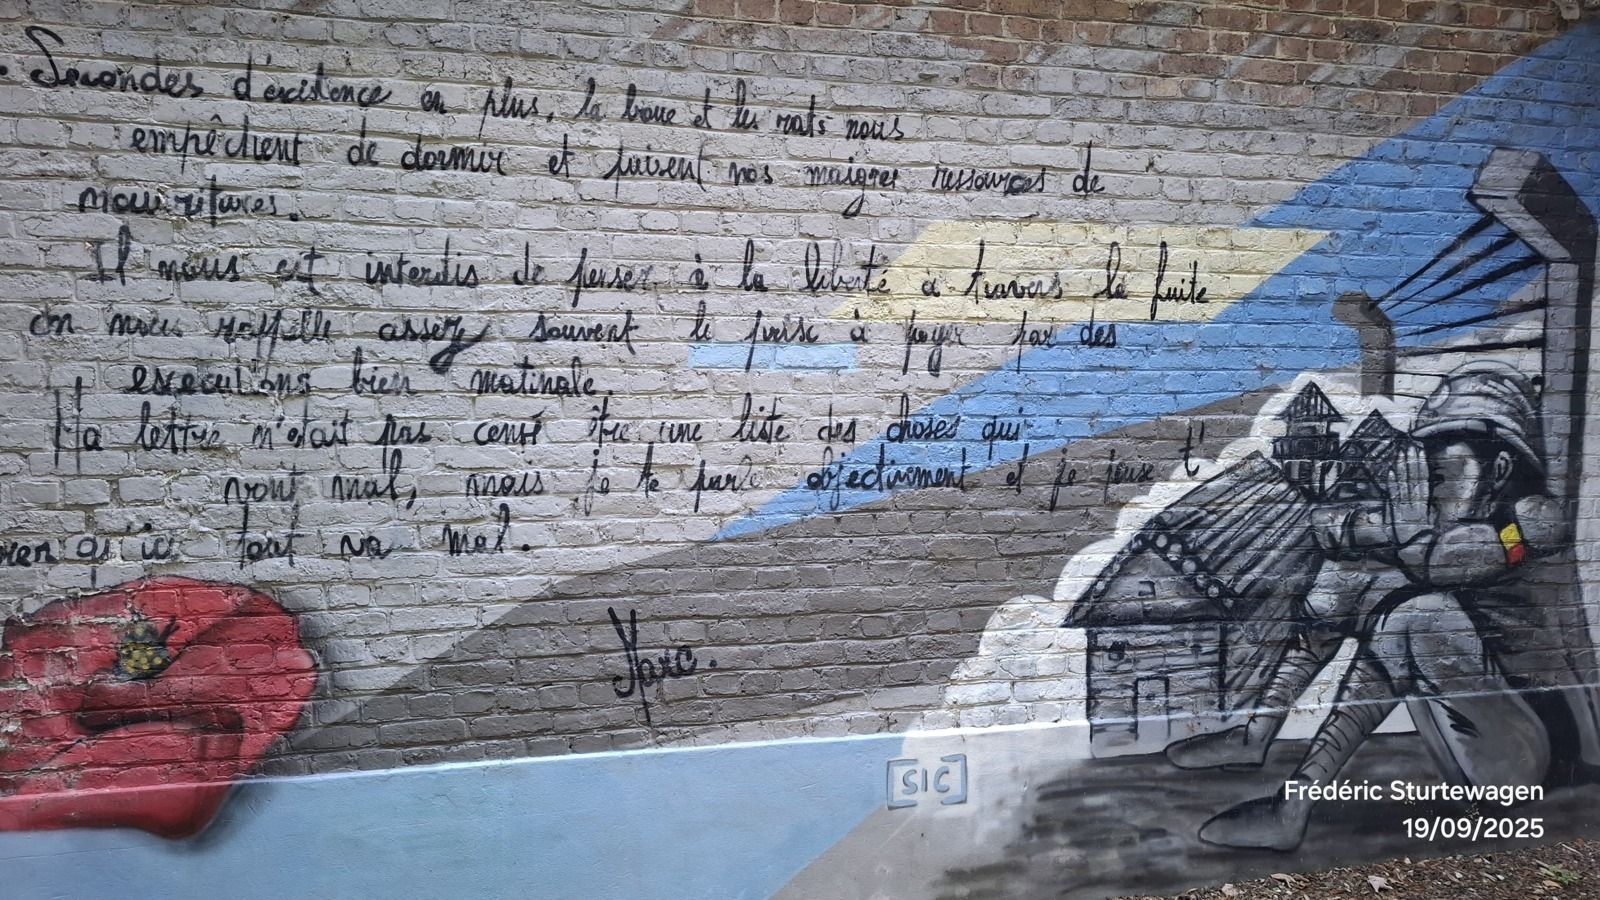 . Secondes d'existence en plus, la boue et les rats nous
empêchent de dormir et puisent nos maigres ressources de
nourritures.
Il nous est interdis de penser à la liberté a travers la fuite
on nous rappelle assez souvent le prix à payer par des
executions bien matinale.
Ma lettre n'etait pas censé être une liste des choses qui
vont mal, mais je te parle objectivment et je peux t'
qu'ici tout va mal.
Marc.
[SIC]
Frédéric Sturtewagen
19/09/2025